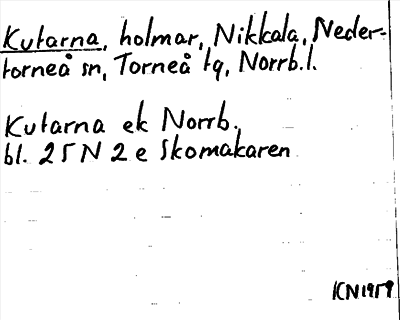 Kutarna, holmar, Nikkala, Neder-
torneå sn, Torneå tg, Norrb.l.
Kutarna ek Norrb.
bl. 25 N 2 e Skomakaren
KN1959